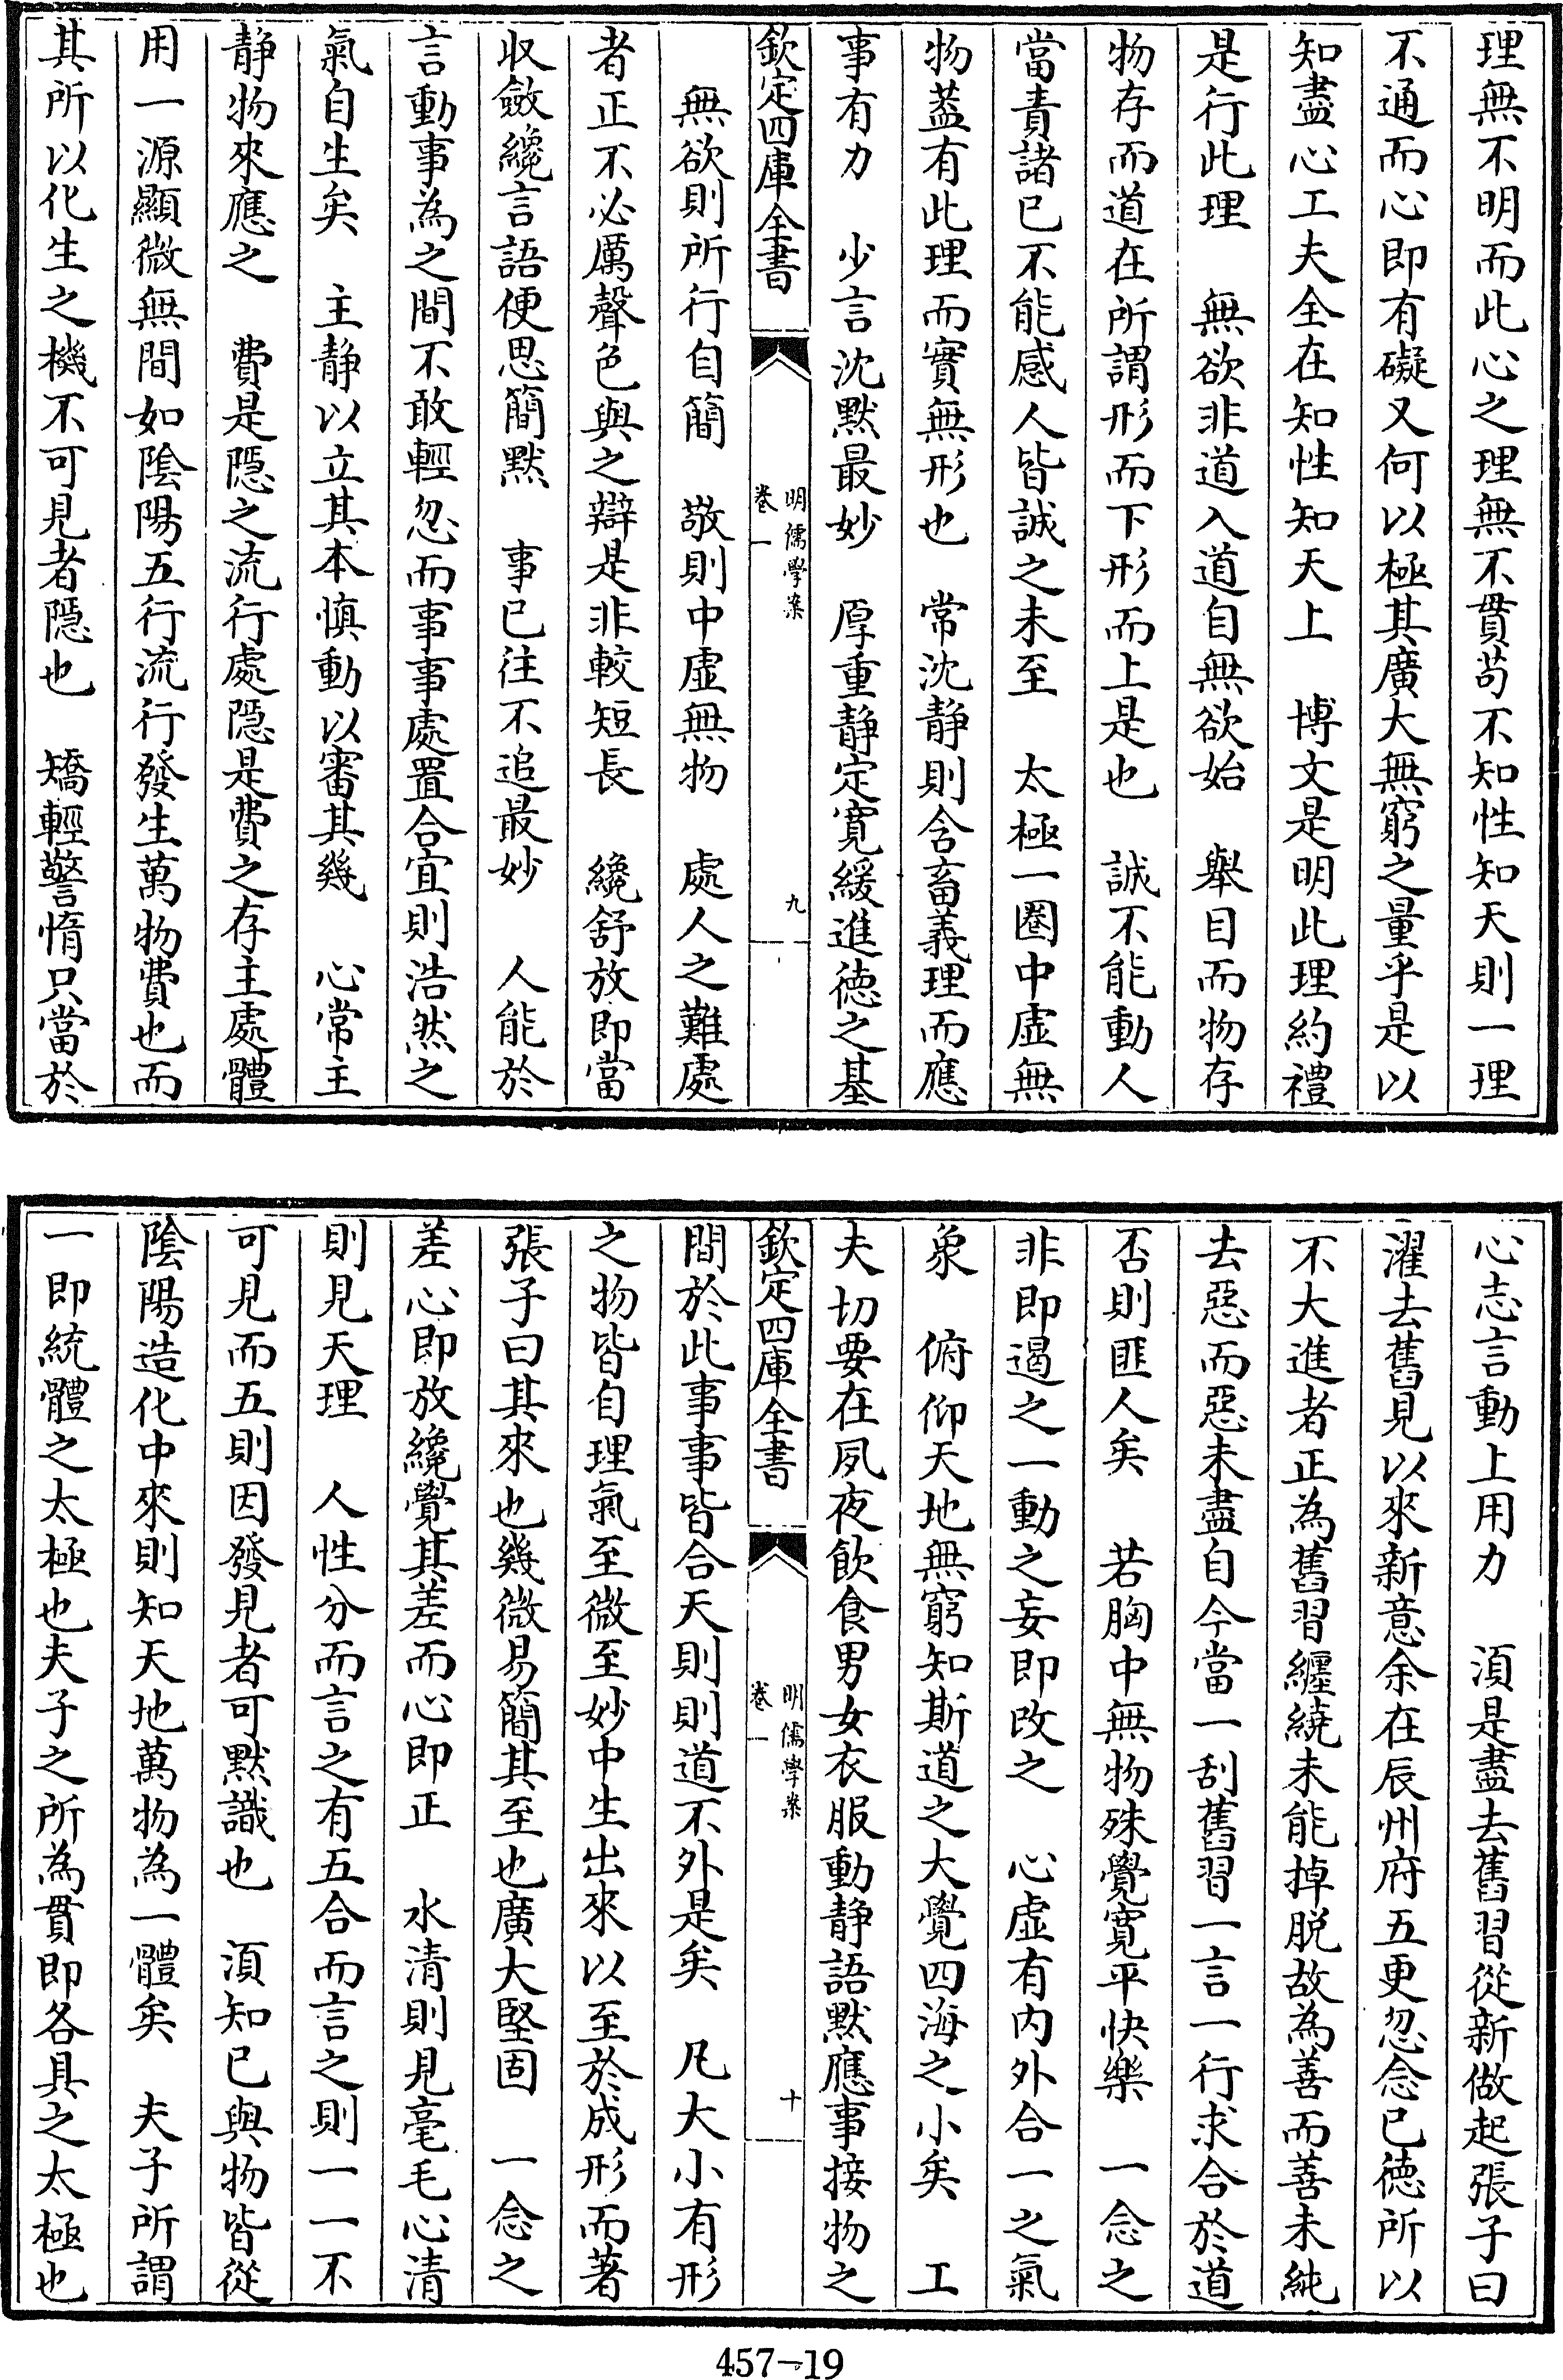 理無不明而此心之理無不貫苟不知性知天則一理
不通而心即有礙又何以極其廣大無窮之量乎是以
知盡心工夫全在知性知天上　博文是明此理約禮
是行此理　無欲非道入道自無欲始　舉目而物存
物存而道在所謂形而下形而上是也　誠不能動人
當責諸已不能感人皆誠之未至　太極一圏中虚無
物葢有此理而實無形也　常沈静則含畜義理而應
事有力　少言沈默最妙　厚重静定寛緩進徳之基
欽定四庫全書
明儒學案
卷一
九
無欲則所行自簡　敬則中虚無物　處人之難處
者正不必厲聲色與之辯是非較短長　纔舒放即當
収斂纔言語便思簡默　事已往不追最妙　人能於
言動事為之間不敢輕忽而事事處置合宜則浩然之
氣自生矣　主静以立其本慎動以審其幾　心常主
静物來應之　費是隱之流行處隱是費之存主處體
用一源顯微無間如隂陽五行流行發生萬物費也而
其所以化生之機不可見者隱也　矯輕警惰只當於
心志言動上用力　湏是盡去舊習從新做起張子曰
濯去舊見以來新意余在辰州府五更忽念已徳所以
不大進者正為舊習纒繞未能掉脱故為善而善未純
去惡而惡未盡自今當一刮舊習一言一行求合於道
否則匪人矣　若胸中無物殊覺寛平快樂　一念之
非即遏之一動之妄即改之　心虚有内外合一之氣
象　俯仰天地無窮知斯道之大覺四海之小矣　工
夫切要在夙夜飲食男女衣服動静語默應事接物之
欽定四庫全書
明儒學案
卷一
十
間於此事事皆合天則則道不外是矣　凡大小有形
之物皆自理氣至微至妙中生出來以至於成形而著
張子曰其來也幾微易簡其至也廣大堅固　一念之
差心即放纔覺其差而心即正　水清則見毫毛心清
則見天理　人性分而言之有五合而言之則一一不
可見而五則因發見者可默識也　湏知已與物皆從
隂陽造化中來則知天地萬物為一體矣　夫子所謂
一即統體之太極也夫子之所為貫即各具之太極也
457-19